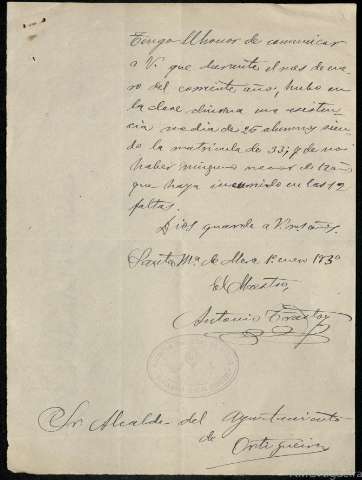 Tengo el honor de comunicar
a V. que durante el mes de ene
ro del corriente año, hubo en
la clase diurna una asisten-
cia media de 26 alumnos sien
do la matrícula de 33; y de no
haber ninguno menor de 12 añ
que haya incurrido en las 12
faltas.
Dios guarde a V. ms. añs.
Santa Mª de Mera 1º enero 1930
El Maestro,
Antonio
Sr. Alcalde del Ayuntamiento
de
Ortigueira